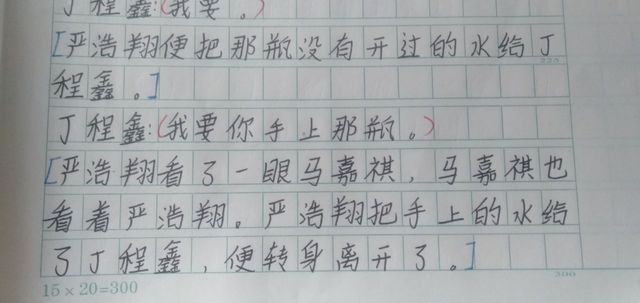 丁程鑫:(我要。)
[严浩翔便把那瓶没有开过的水给丁
程鑫。]
丁程鑫:(我要你手上那瓶。)
[严浩翔看了一眼马嘉祺,马嘉祺也
看着严浩翔。严浩翔把手上的水给
了丁程鑫,便转身离开了。]
15×20=300
300